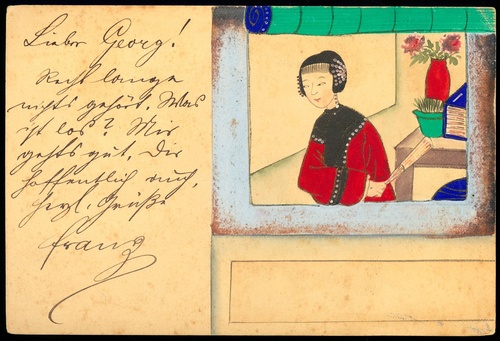 Lieber Georg!
Recht lange
nichts gehört. Was
ist los? Mir
gehts gut, Dir
hoffentlich auch.
Hzl. Grüße
Franz